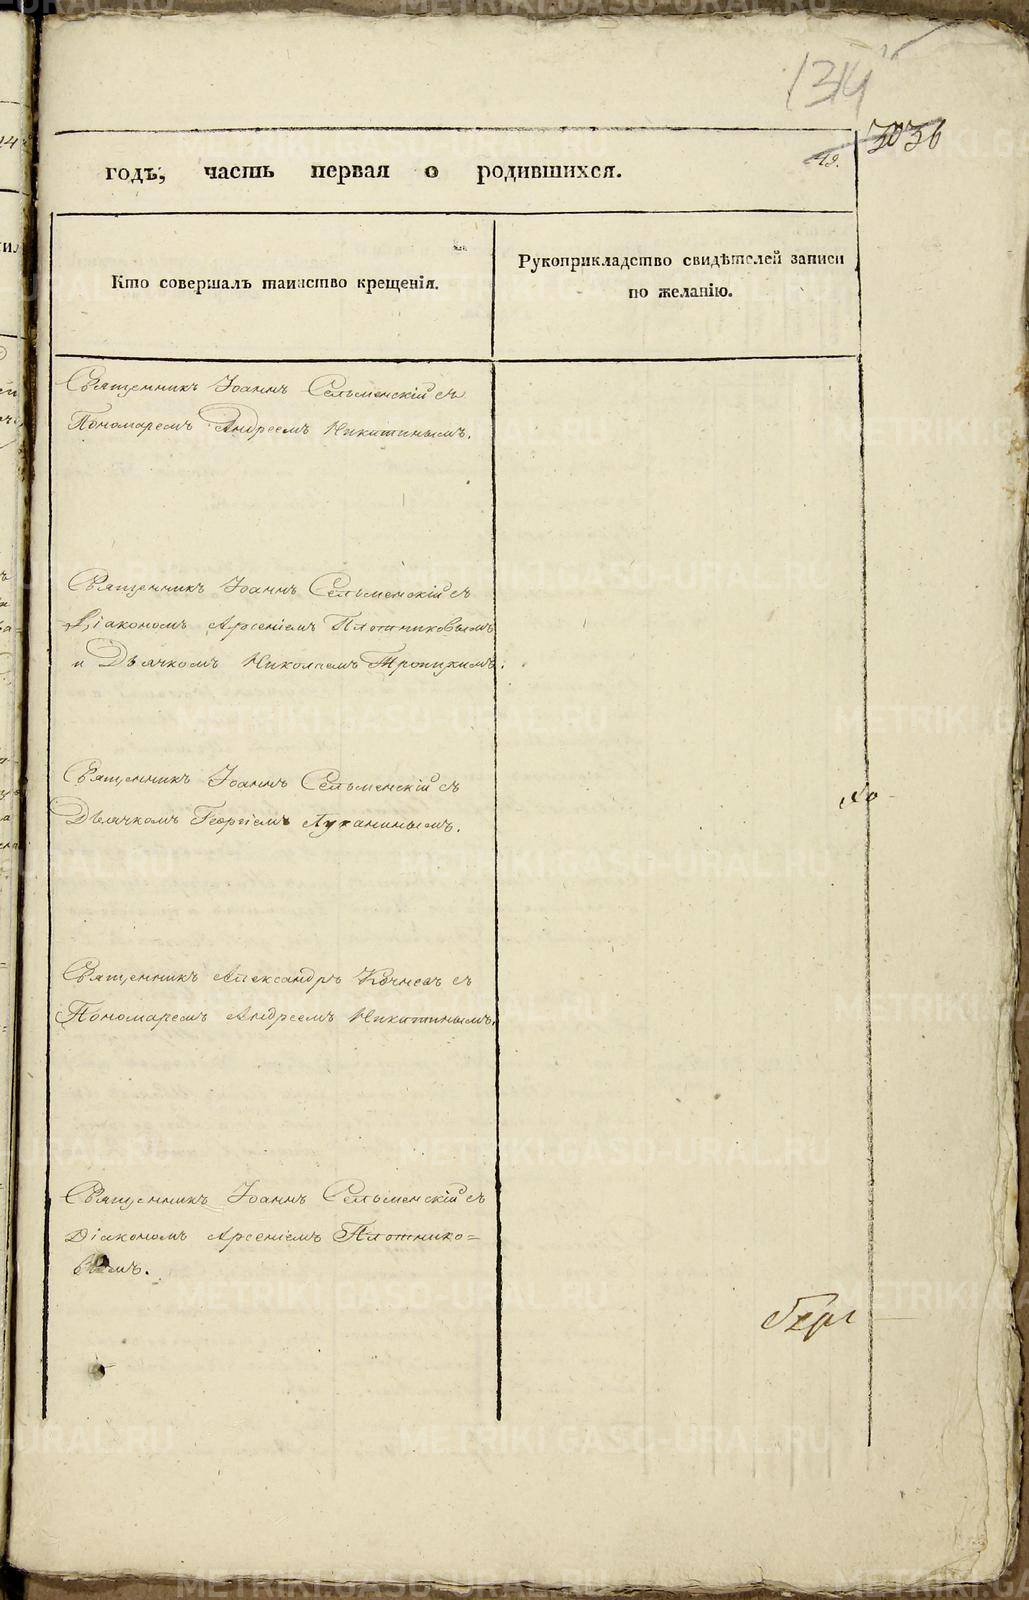 134
3036
19.
годъ, часть первая о родившихся.
Кто совершалъ таинство крещенія.
Рукоприкладство свидѣтелей записи
по желанію.
Священникъ Іоаннъ Сельменскій съ
Пономаремъ Андреемъ Никитинымъ.
Священникъ Іоаннъ Сельменскій съ
Діакономъ Арсеніемъ Плотниковымъ
и Дьячкомъ Николаемъ Троицкимъ.
Священникъ Іоаннъ Сельменскій съ
Дьячкомъ Георгіемъ Луканинымъ.
Священникъ Александръ Кочневъ съ
Пономаремъ Андреемъ Никитинымъ.
Священникъ Іоаннъ Сельменскій съ
Діакономъ Арсеніемъ Плотнико=
вымъ.
METRIKI.GASO-URAL.RU